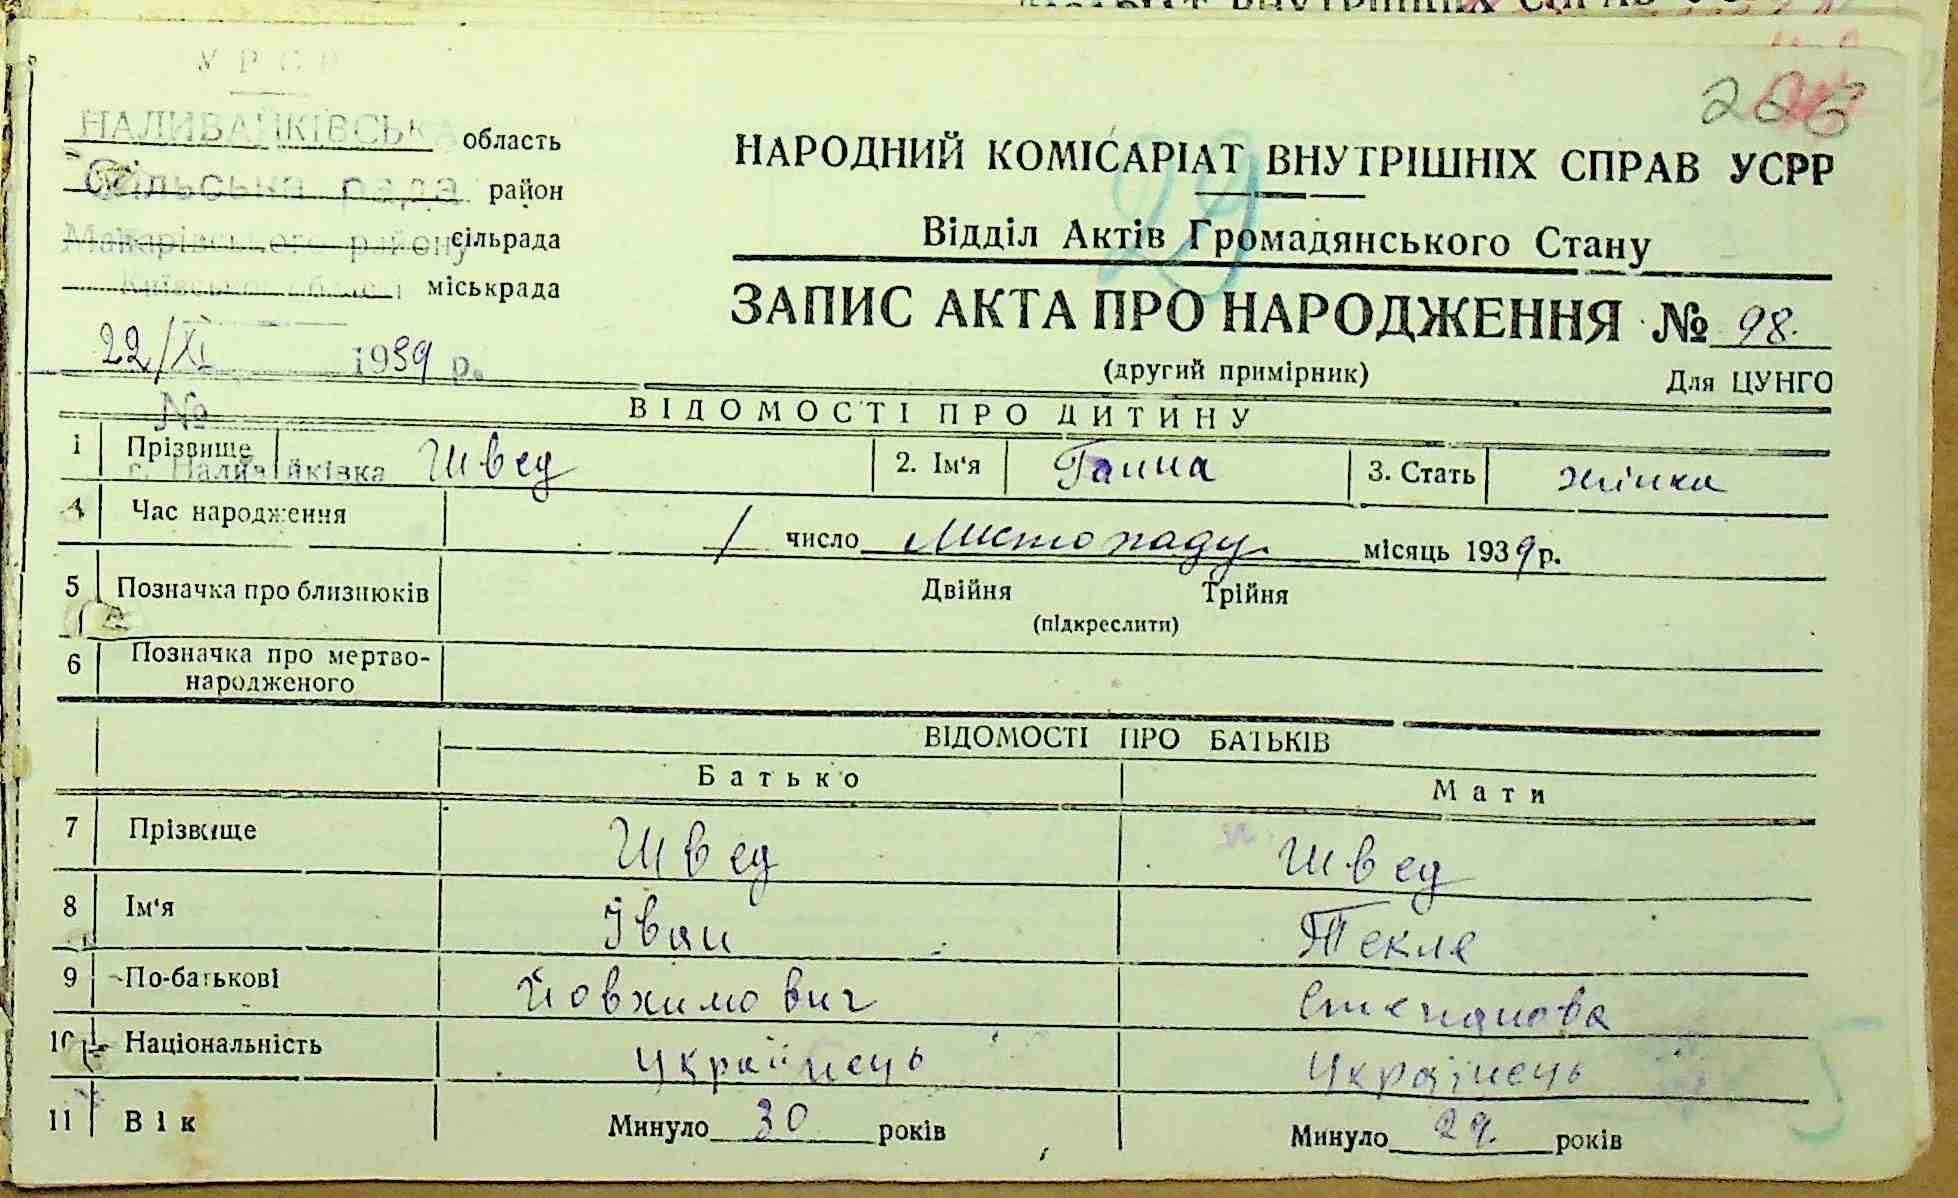 У Р С Р
НАЛИВАЙКІВСЬКА область
Сільська рада район
Макарівського району сільрада
Київської області міськрада
22/XI 1939 р.
№
с. Наливайківка
206
29
НАРОДНИЙ КОМІСАРІАТ ВНУТРІШНІХ СПРАВ УСРР
Відділ Актів Громадянського Стану
ЗАПИС АКТА ПРО НАРОДЖЕННЯ № 98.
(другий примірник) Для ЦУНГО
ВІДОМОСТІ ПРО ДИТИНУ
1 Прізвище Швед 2. Ім'я Ганна 3. Стать жінка
4 Час народження 1 число Листопаду місяць 1939 р.
5 Позначка про близнюків Двійня Трійня
(підкреслити)
6 Позначка про мертво-
народженого
ВІДОМОСТІ ПРО БАТЬКІВ
Батько Мати
7 Прізвище Швед Швед
8 Ім'я Іван Текля
9 По-батькові Йовхимович Степанова
10 Національність Українець Українець
11 Вік Минуло 30 років Минуло 29 років